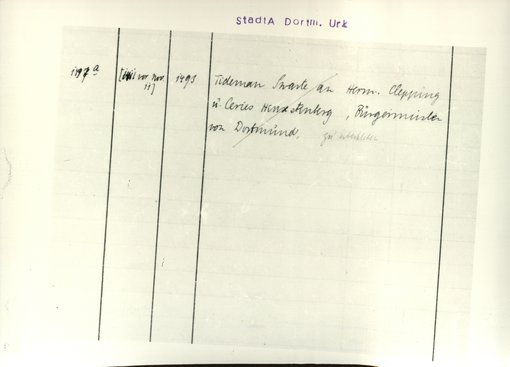 StadtA Dortm. Urk
1197 a [vor Nov. 11] 1493 Tideman Swarte an Herm. Clepping
u. Ceries Henxstenberg, Bürgermeister
von Dortmund.